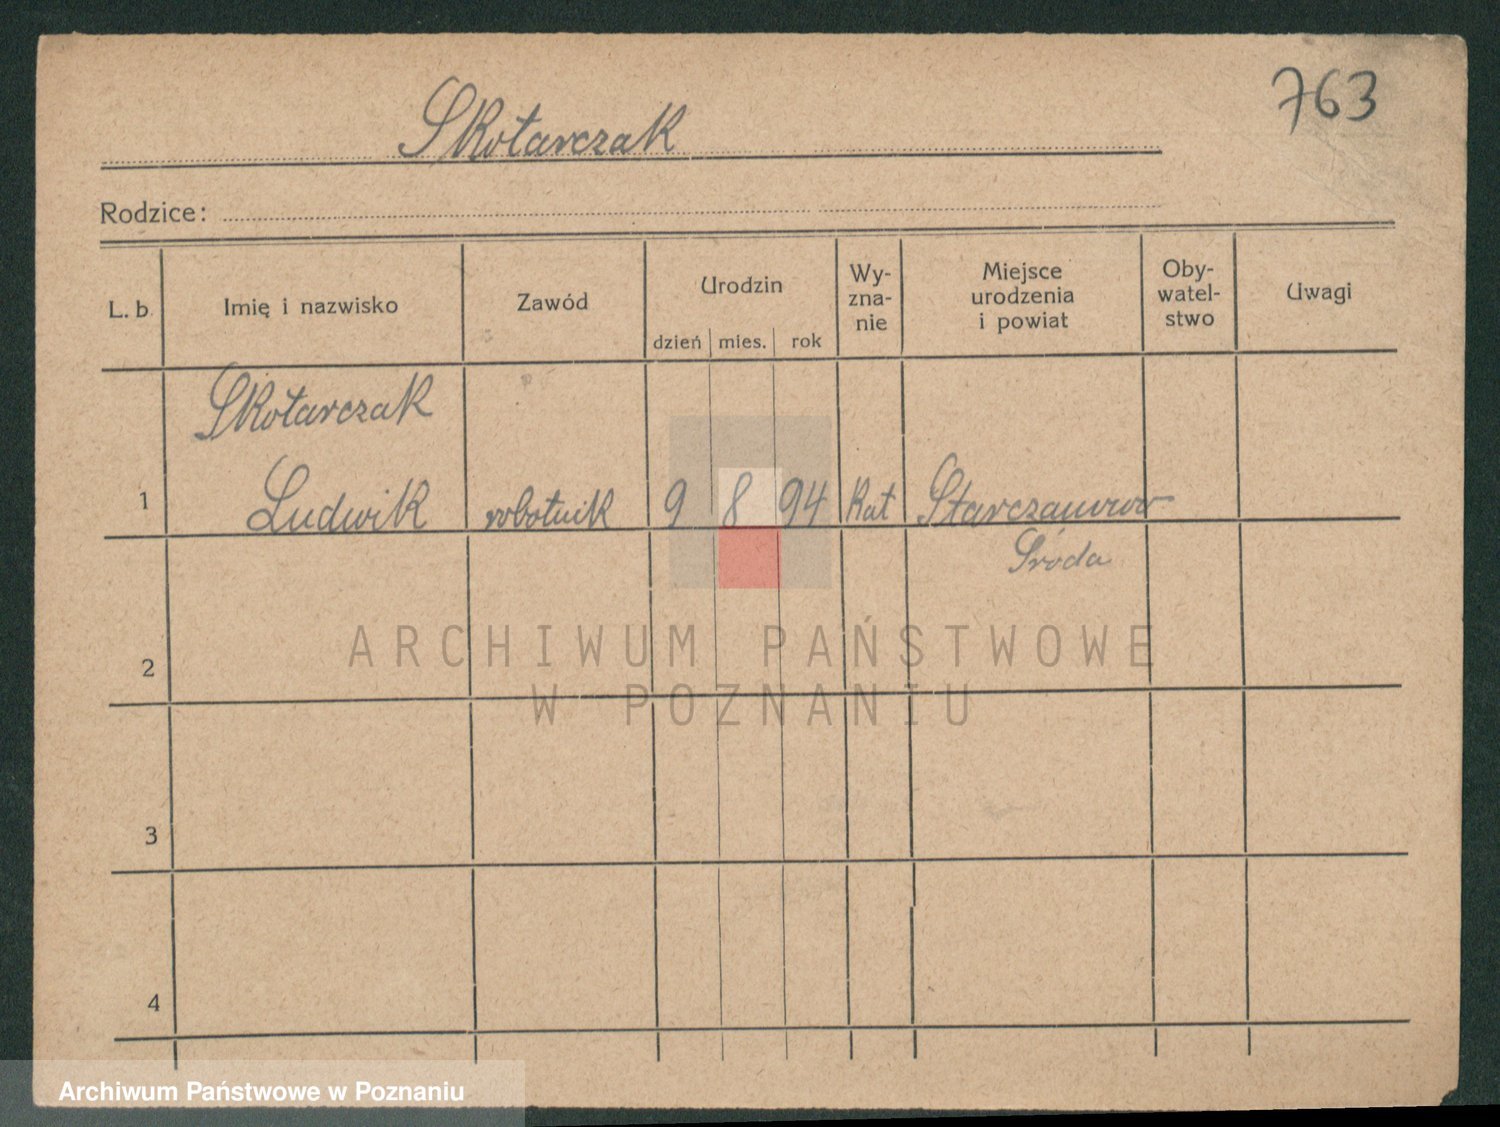 763
Skotarczak
Rodzice:
L. b.
Imię i nazwisko
Zawód
Urodzin
dzień mies. rok
Wy-
zna-
nie
Miejsce
urodzenia
i powiat
Oby-
watel-
stwo
Uwagi
Skotarczak
1 Ludwik robotnik 9 8 94 Kat Starczanowo
Środa
2
3
4
ARCHIWUM PAŃSTWOWE
W POZNANIU
Archiwum Państwowe w Poznaniu